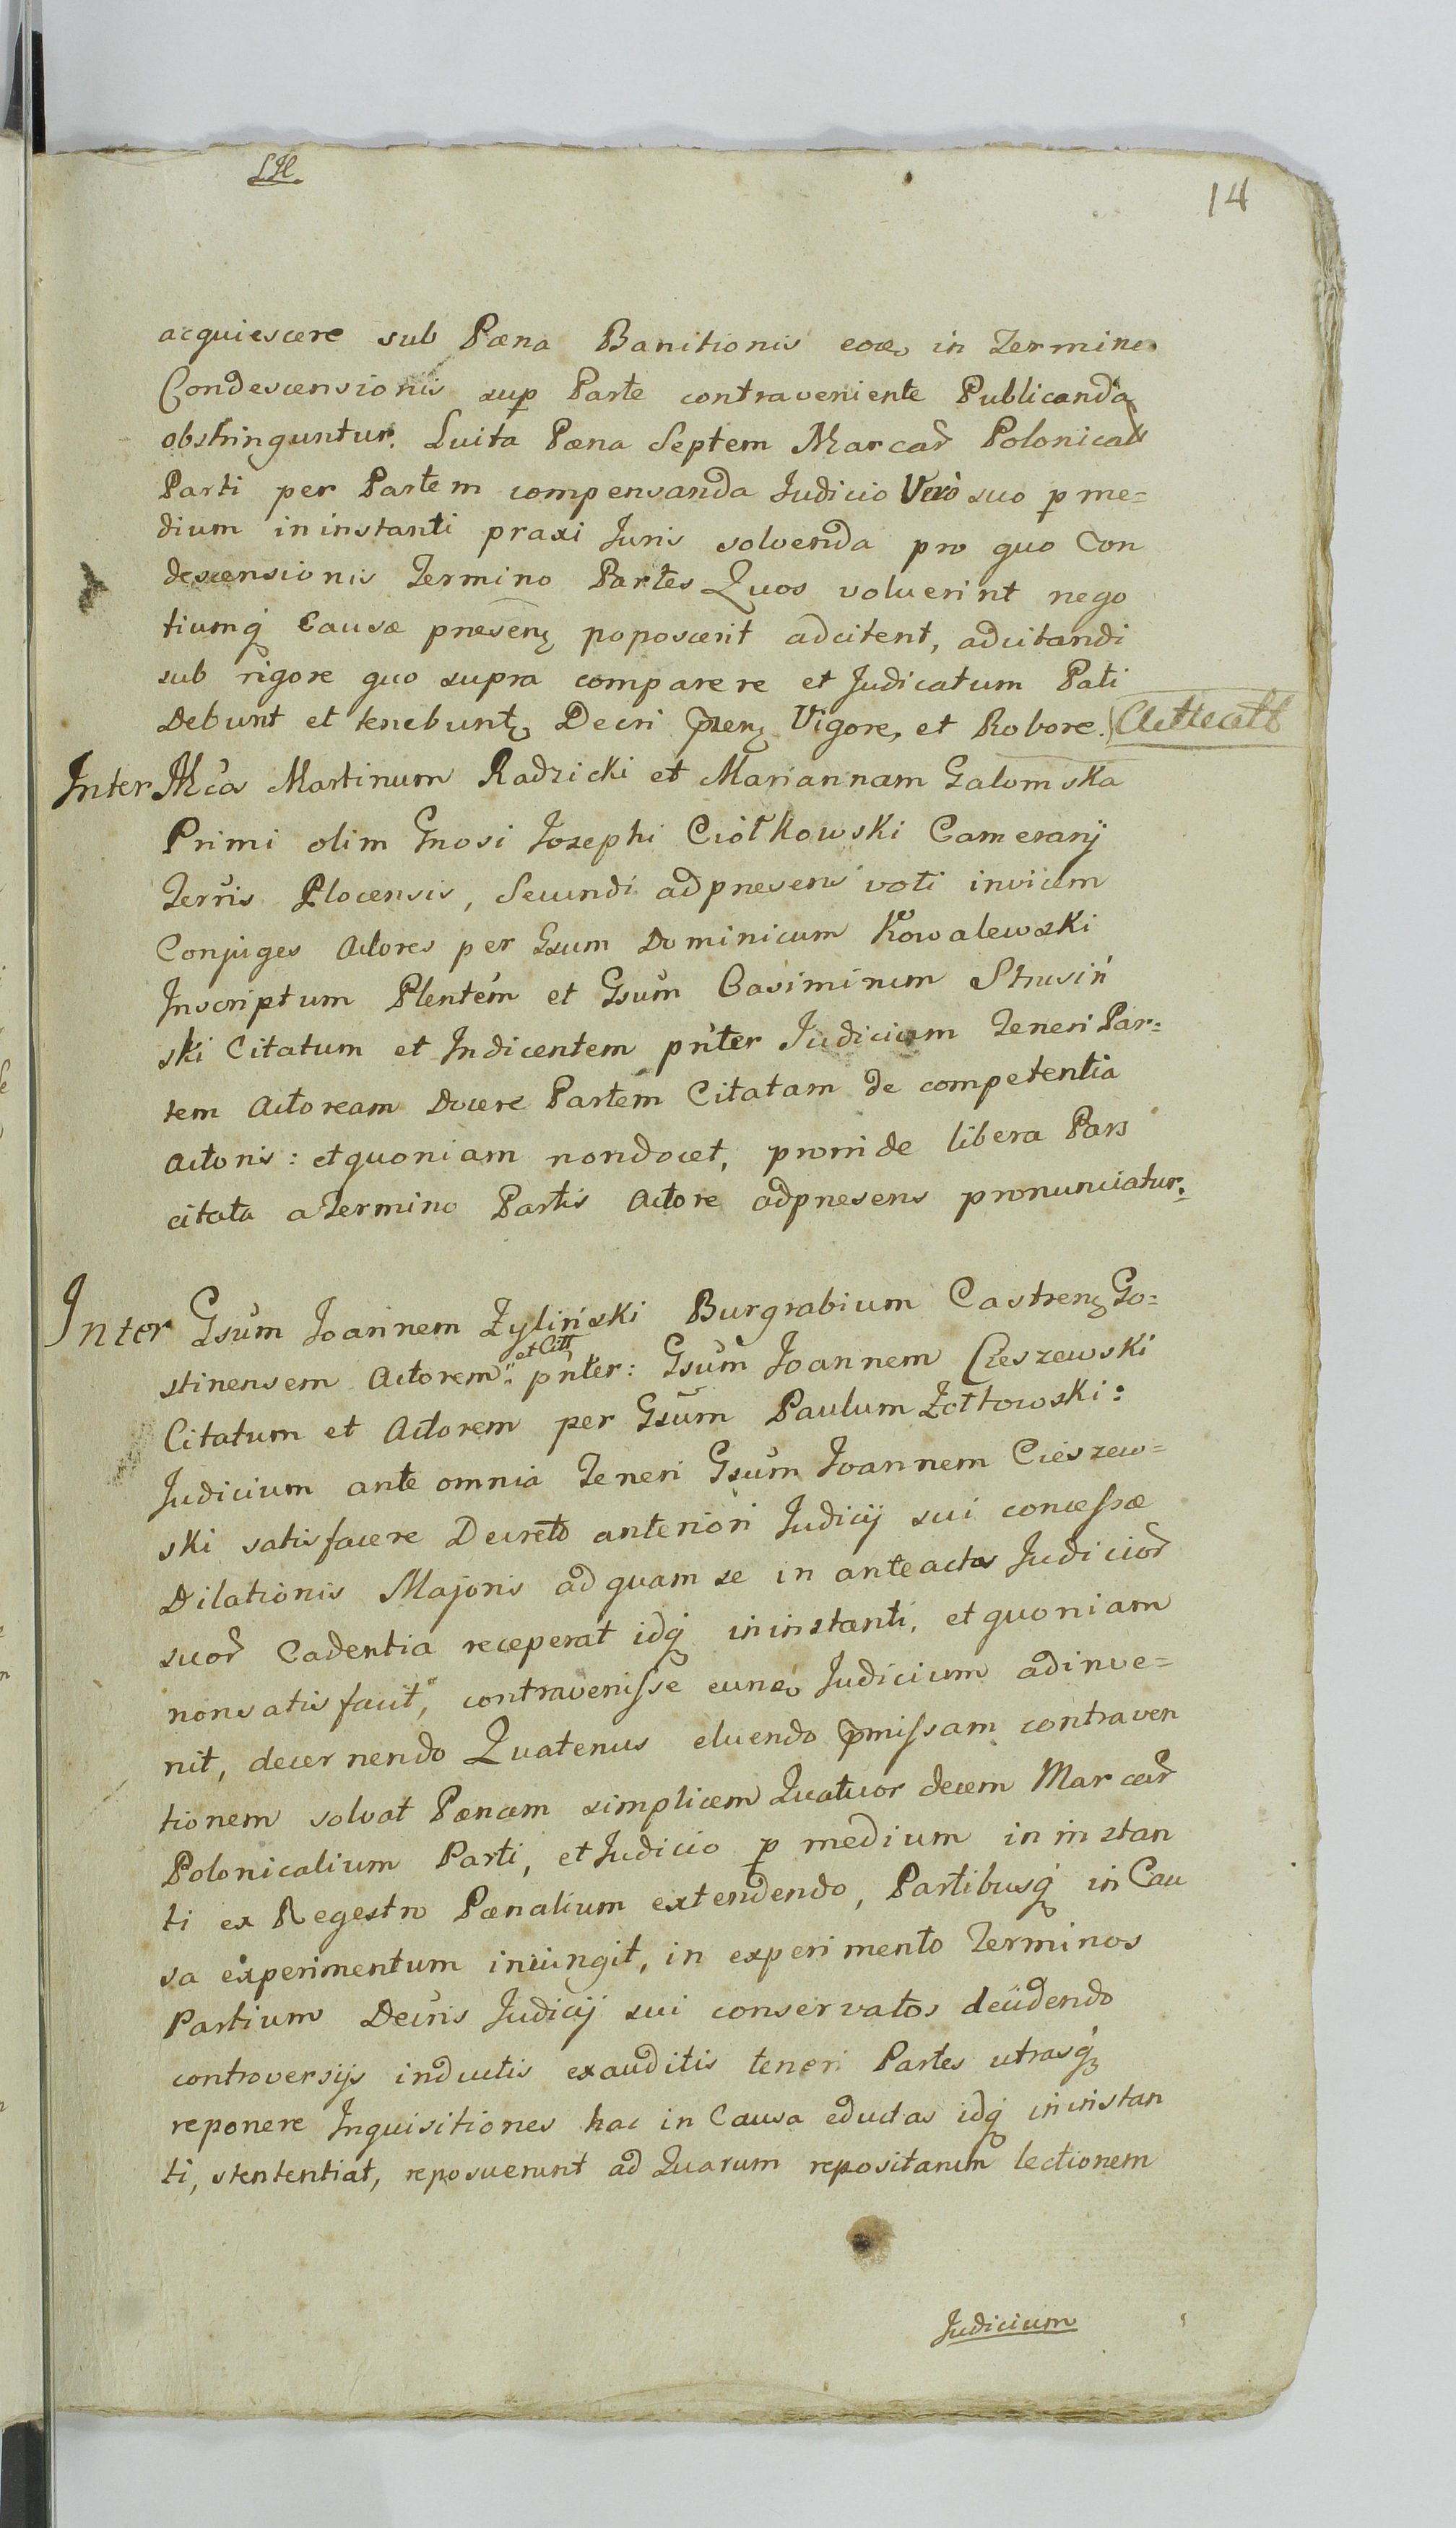 14
acquiescere sub Pœna Banitionis in Termino
Condescensionis sup Parte contraveniente Publicanda
obstringuntur. Luita Pœna Septem Marcar Polonical
Parti per Partem compensanda Judicio Vero suo p me=
dium ininstanti praxi Juris solvenda pro quo Con
descensionis Termino Partes Quos voluerint nego
tiumq Causæ præsenę poposcerit adcitent, adcitandi
sub rigore quo supra comparere et Judicatum Pati
Debunt et tenebuntę Decri pzenę Vigore, et Robore.
Inter Martinum Radzicki et Mariannam Galomska
Primi olim Gnosi Josephi Ciółkowski Cameranij
Terris Plocensis, Secundi adpræsens voti invicem
Conjuges Actores per Gsum Dominicum Kowalewski
Inscriptum Plentem et Gsum Casimirum Strusiń
ski Citatum et Indicentem pnter Judicium Teneri Par=
tem Actoream Docere Partem Citatam de competentia
Actoris: etquoniam nondocet, proinde libera Pars
citata aTermino Partis Actore adpresens pronunciatur.
Inter Gsum Joannem Zyliński Burgrabium Castrenę Go=
stinensem Actorem et Citt pnter: Gsum Joannem Cieszewski
Citatum et Actorem per Gsum Paulum Żółtowski:
Judicium ante omnia Teneri Gsum Joannem Cieszew=
ski satisfacere Decreto anteriori Judicij sui concessæ
Dilationis Majoris ad quam se in anteactos Judicior
suor Cadentia receperat idq ininstanti, et quoniam
nonsatisfacit, contravenisse Judicium adinve=
nit, decernendo Quatenus eluendo pmissam contraven
tionem solvat Pœnam simplicem Quatuor decem Marcar
Polonicalium Parti, et Judicio p medium in instan
ti ex Regestro Pœnalium extendendo, Partibusq in Cau
sa experimentum iniungit, in experimento Terminos
Partium Decris Judicij sui conservatos decidendo
controversijs inductis exauditis teneri Partes utrasq
reponere Inquisitiones hac in Causa eductas idq ininstan
ti, stententiat, reposuerunt ad Quarum repositarum lectionem
Judicium